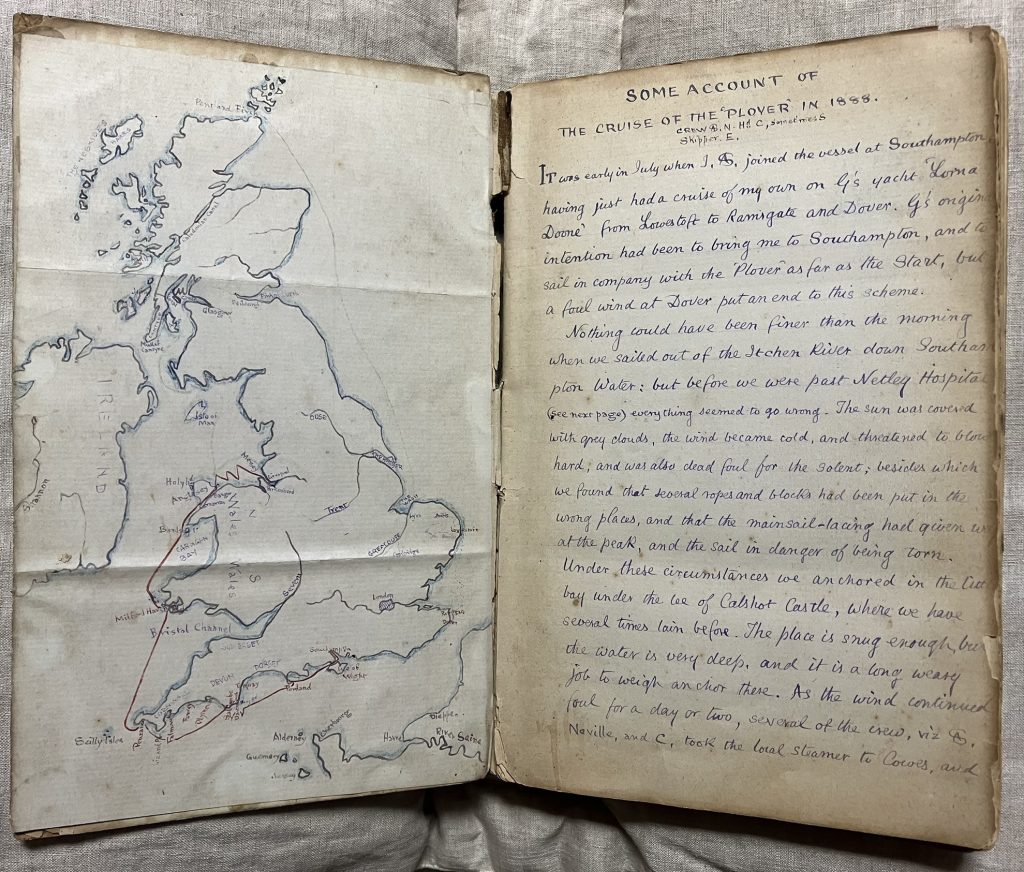 Pent and Fir
THE HEBRIDES
Caledonian
Firth Forth
Glasgow
Mull of
Cantyre
IRELAND
Shannon
Isle of
Man
OUSE
Mersey
Liverpool
Holyh
Wales
CARDIGAN
BAY
Trent
Humber
Lynn
GREAT OUSE
Cambridge
London
Severn
Milford Haven
Bristol Channel
SOMERSET
DEVON
DORSET
Southampton
Isle of
Wight
Portland
Torquay
Scilly Isles
Penzance
Falmouth
Lizard
Alderney
Guernsey
Jersey
Cherbourg
Havre
Dieppe
River Seine
SOME ACCOUNT OF
THE CRUISE OF THE "PLOVER" IN 1888.
CREW N. H. C, sometimes S
Skipper. E.
It was early in July when I, joined the vessel at Southampton,
having just had a cruise of my own on G's yacht "Lorna
Doone" from Lowestoft to Ramsgate and Dover. G's origin
intention had been to bring me to Southampton, and to
sail in company with the "Plover" as far as the Start, but
a foul wind at Dover put an end to this scheme.
Nothing could have been finer than the morning
when we sailed out of the Itchen River down Southam
pton Water: but before we were past Netley Hospital
(see next page) everything seemed to go wrong. The sun was covered
with grey clouds, the wind became cold, and threatened to blow
hard; and was also dead foul for the Solent; besides which
we found that several ropes and blocks had been put in the
wrong places, and that the mainsail-lacing had given w
at the peak, and the sail in danger of being torn.
Under these circumstances we anchored in the
bay under the lee of Calshot Castle, where we have
several times lain before. The place is snug enough, but
the water is very deep, and it is a long weary
job to weigh anchor there. As the wind continued
foul for a day or two, several of the crew, viz
Neville, and C, took the local steamer to Cowes, and